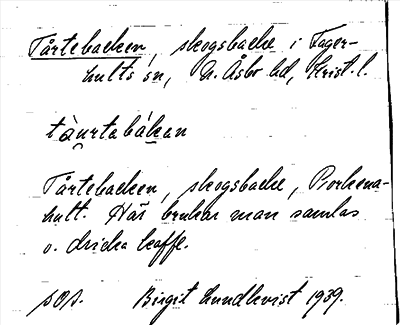 Tårtebacken, skogsbacke i Fager-
hults sn, N. Åsbo hd, Krist. l.
tåurtabákan
Tårtebacken, skogsbacke, Porkena-
hult. Här brukar man samlas
o. dricka kaffe.
Birgit Lundkvist 1939.